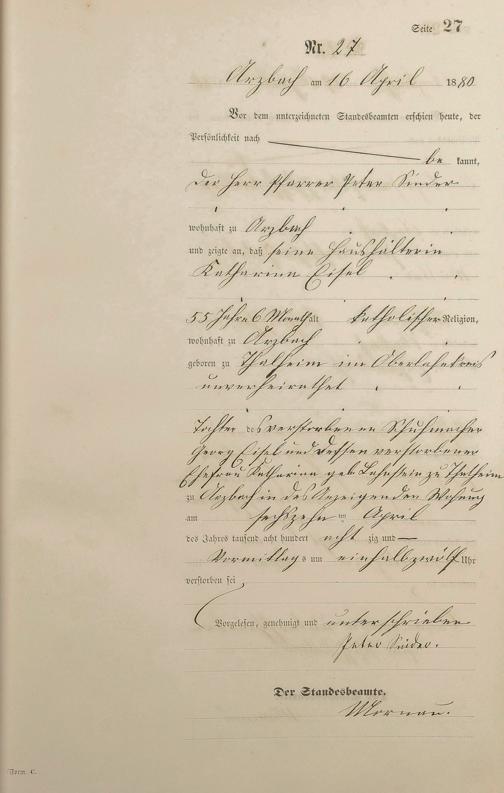 Seite 27
Nr. 27
Arzbach am 16 April 1880
Vor dem unterzeichneten Standesbeamten erschien heute, der
Persönlichkeit nach
be kannt,
der Herr Pfarrer Peter Sinder
wohnhaft zu Arzbach
und zeigte an, daß seine Haushälterin
Katharina Eisel
55 Jahre 6 Monath alt katholischer Religion,
wohnhaft zu Arzbach
geboren zu Thalheim im Oberlahnkreis
unverheirathet
Tochter des verstorbenen Schuhmacher
Georg Eisel und dessen verstorbener
Ehefrau Katharina geb. zu Thalheim
zu Arzbach in des Anzeigenden Wohnung
am sechszehn ten April
des Jahres tausend acht hundert acht zig und —
Vormittags um einhalb zwölf Uhr
verstorben sei
Vorgelesen, genehmigt und unterschrieben
Peter Sinder.
Der Standesbeamte.
Form. C.